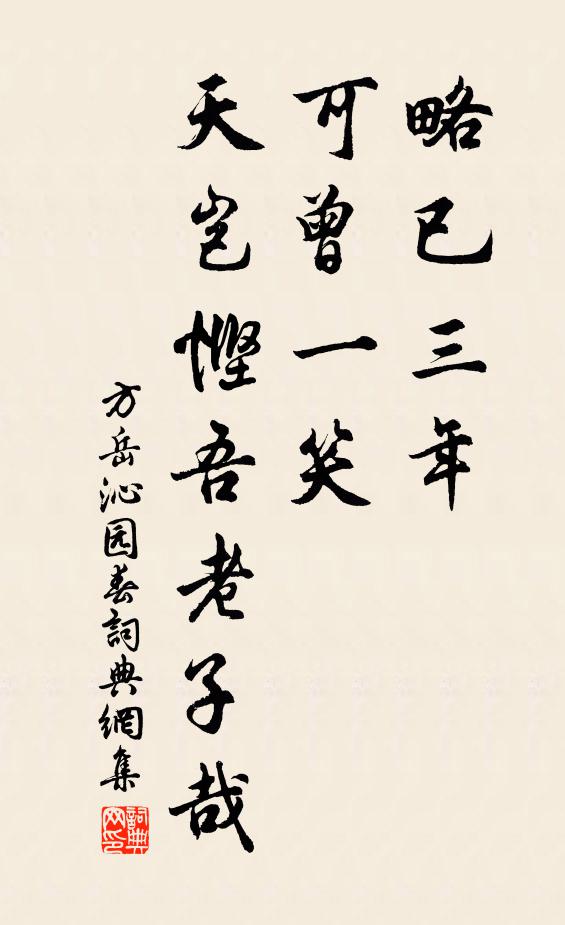 略已三年
可曾一笑
天岂慳吾老子哉
方岳沁园春詞典網集
詞典网印